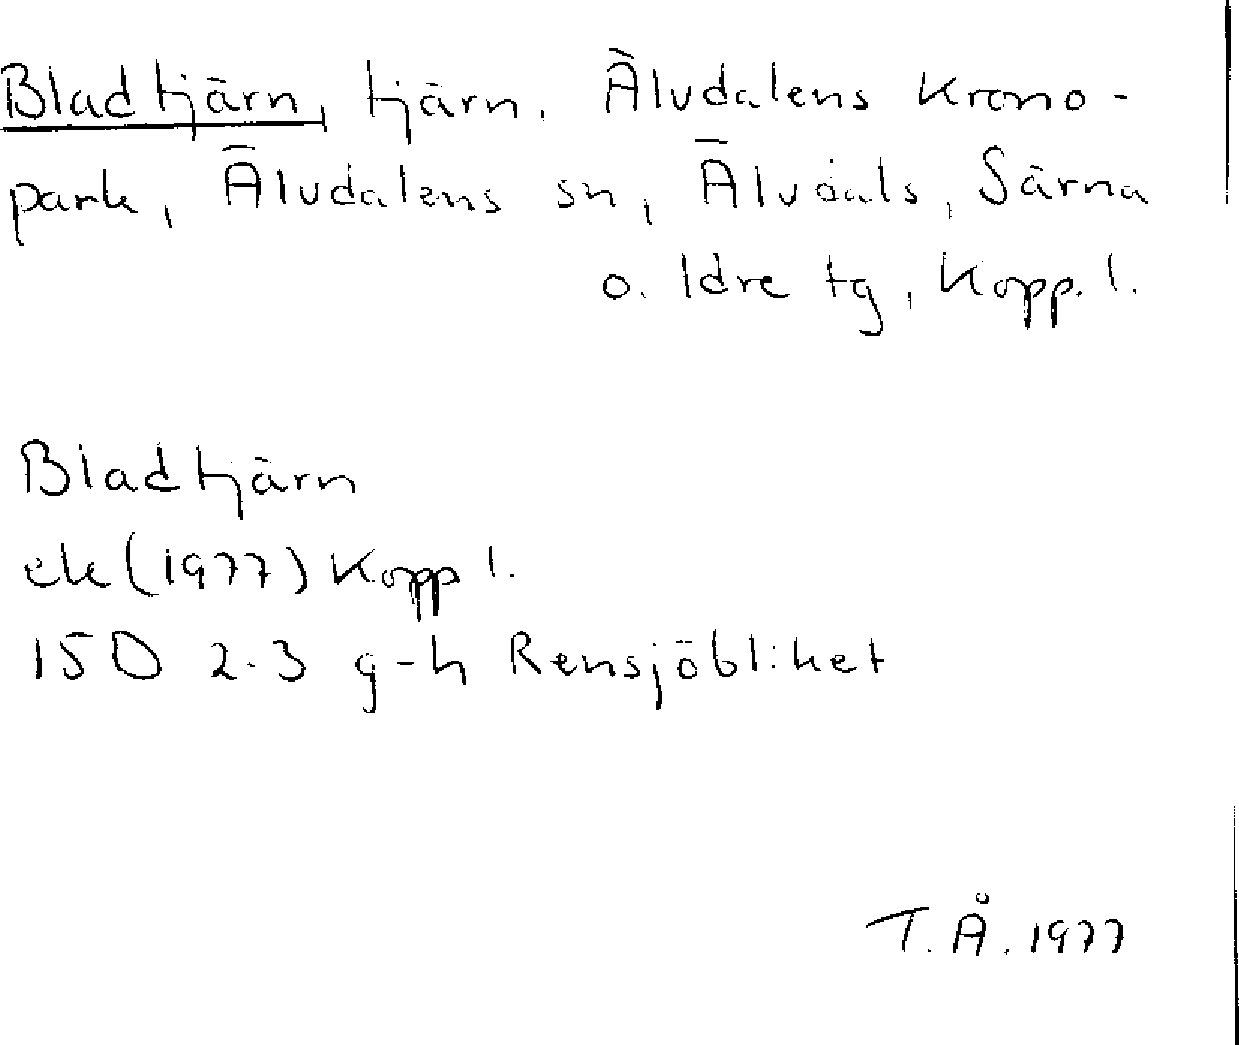 Bladtjärn, tjärn. Älvdalens Krono-
park, Älvdalens sn, Älvdals, Särna
o. Idre tg, Kopp. l.
Bladtjärn
ek (1977) Kopp l.
15D 2-3 g-h Rensjöbliket
T.Å. 1977